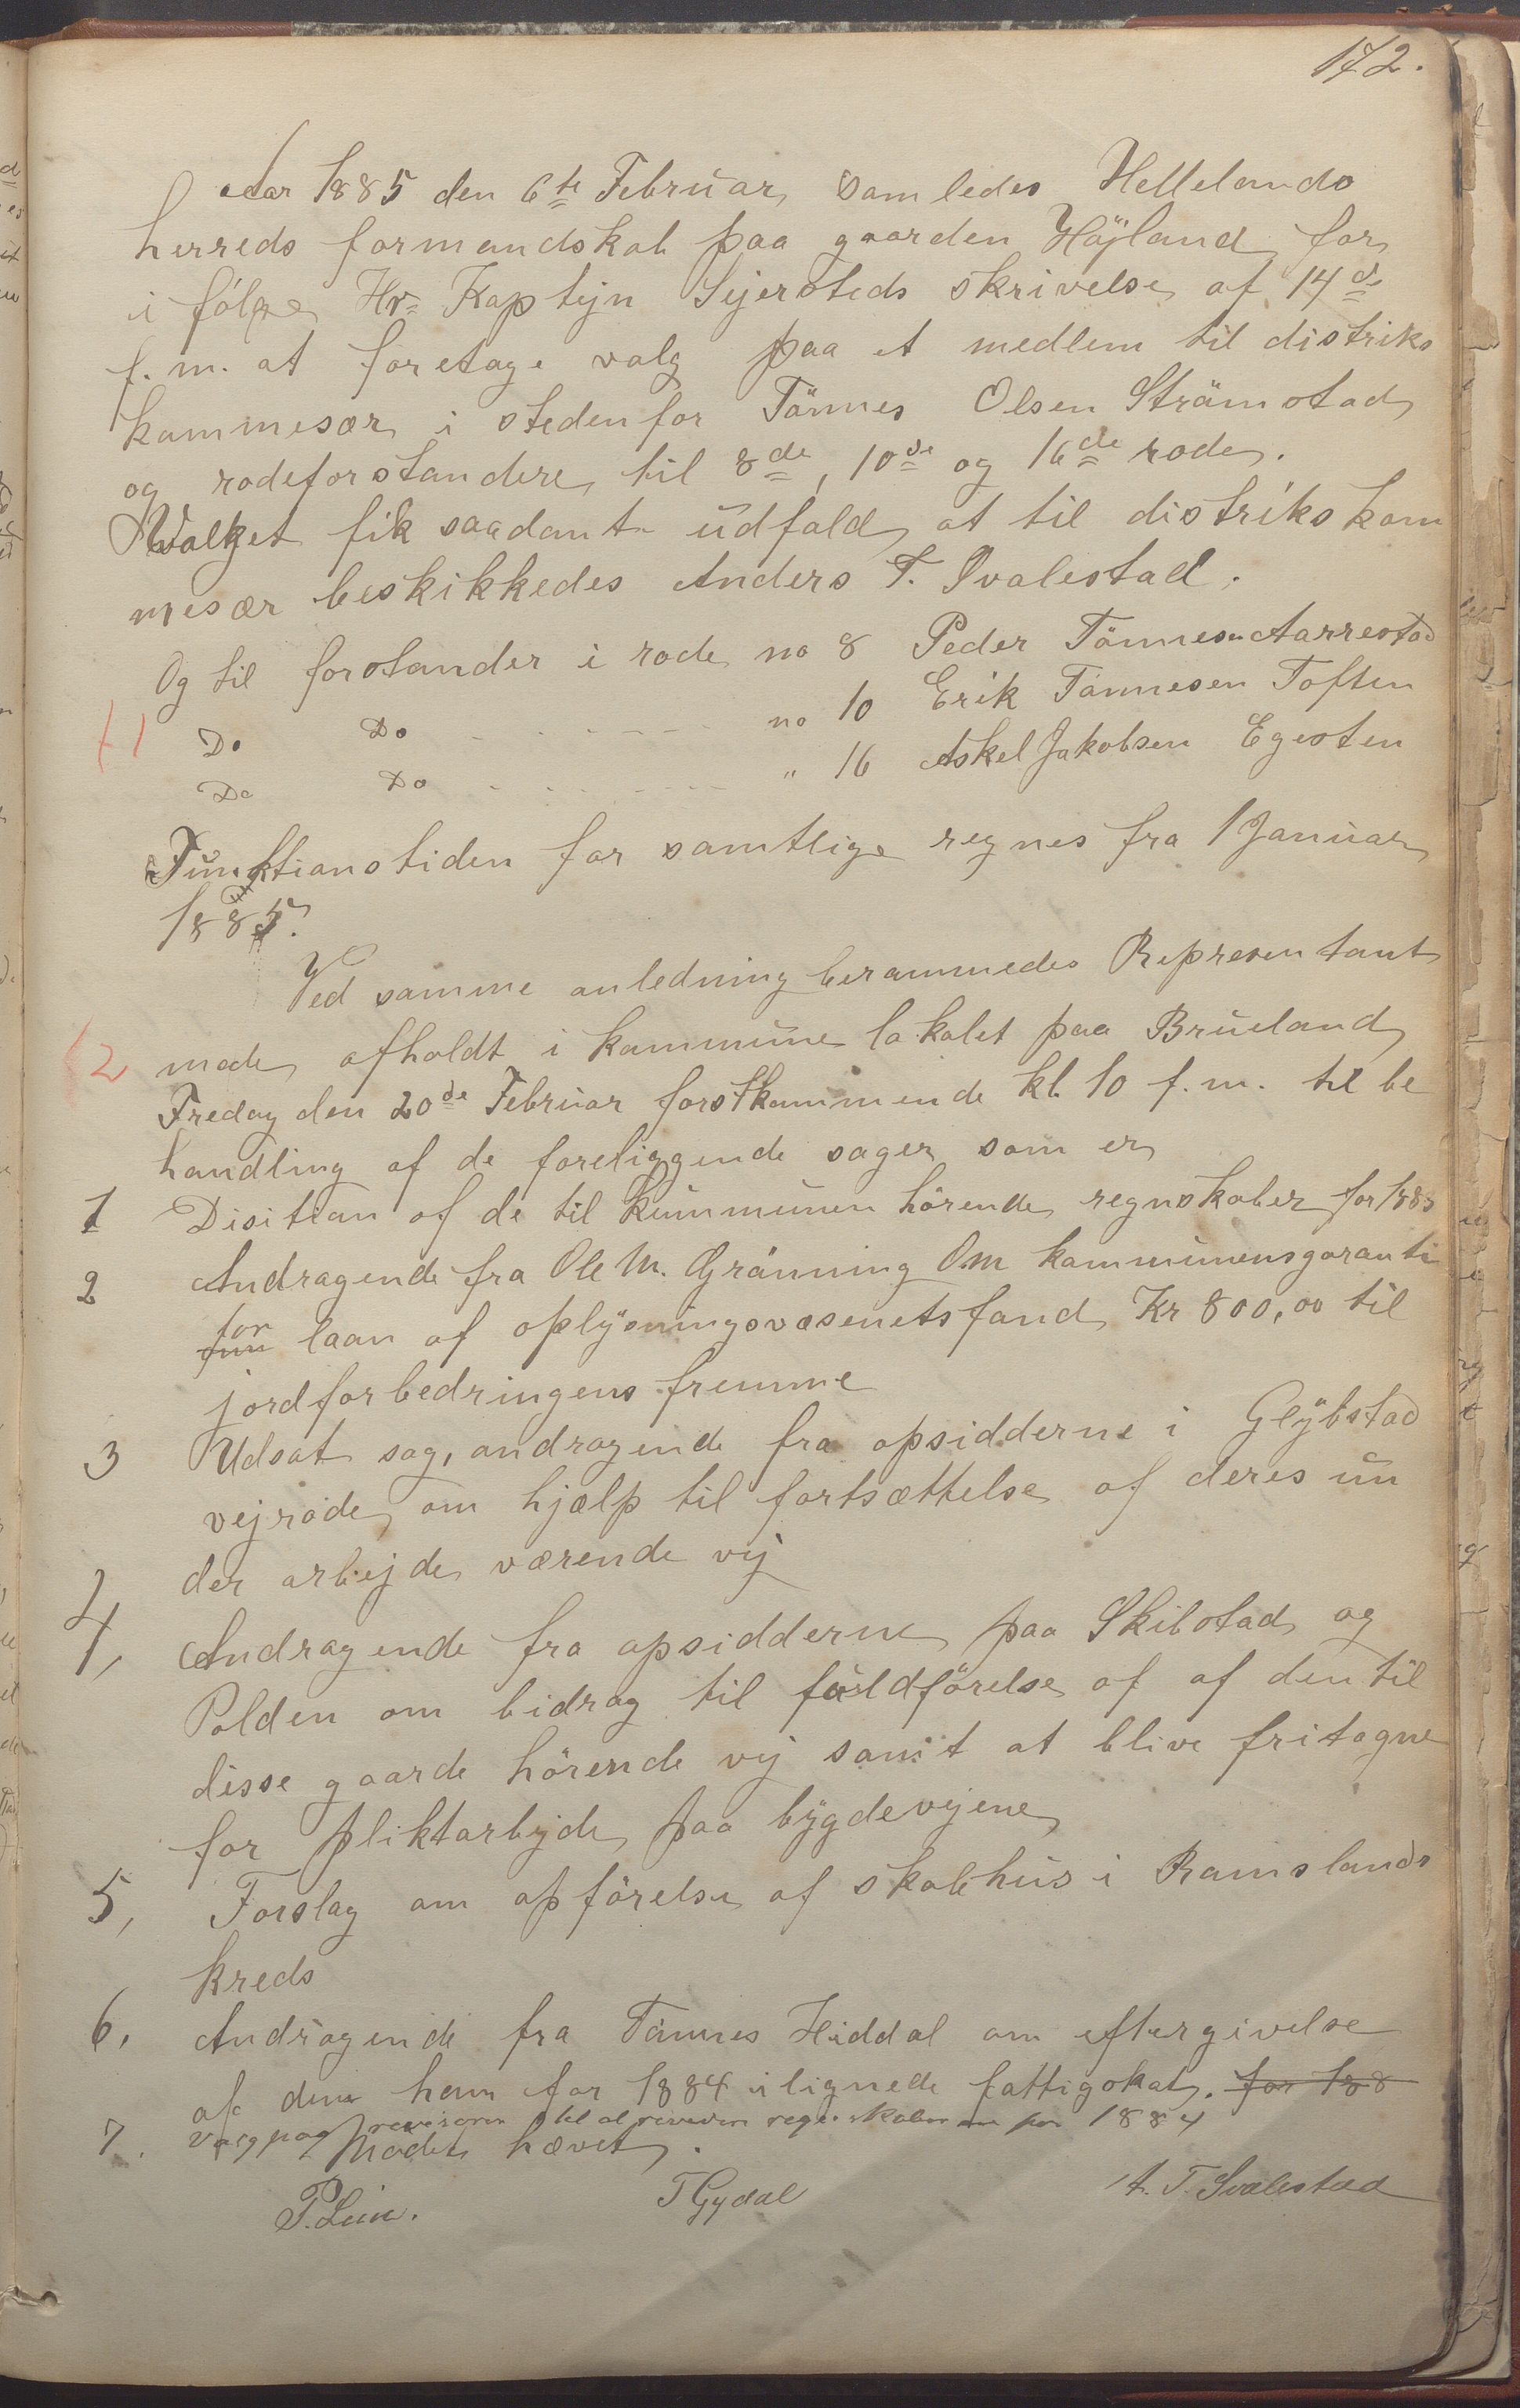 172.
Aar 1885 den 6te Februar, samledes Hellelands
herreds formandskab paa gaarden Höjland for
i følge Hr= Kaptejn Sejersteds skrivelse af 14de
f. m. at foretage valg paa et medlem til distriks
kammesær i stedenfor Tönnes Olsen Strämstad
og rodeforstandere til 8de, 10de og 16de rode.
Walget fik saadant udfald at til distrikskom
mesær beskikkedes Anders T. Svalestad.
Og til forstander i rode no 8 Peder Tönnesen Aarrestad
1 Do Do - - - - - - no 10 Erik Tönnesen Toften
Do Do - - - - - - " 16 Askel Jakobsen Egesten
Funktionstiden for samtlige regnes fra 1 Januar
1885.
Ved samme anledning berammedes Representant
2 møde afholdt i kommune lokalet paa Brueland
Fredag den 20de Februar førstkommende kl. 10 f. m. til be
handling af de foreliggende sager som er
1 Disition af de til kummunen hörende regnskaber for 1883
2 Andragende fra Ole M. Grönning Om kommunensgaranti
for laan af oplysningsvæsenetsfand Kr 800,00 til
jordforbedringens fremme
3 Udsat sag, andragende fra opsidderne i Gÿbstad
vejrode om hjælp til fortsættelse af deres un
der arbejde værende vej
4, Andragende fra opsidderne paa Skibstad og
Polden om bidrag til fuldförelse af af den til
disse gaarde hörende vej samt at blive fritagne
for pliktarbejde paa bÿgdevejene
5, Forslag om opförelse af skolehus i Ramslands
kreds
6, Andragende fra Tönnes Hiddal om eftergivelse
af den ham for 1884 ilignede fattigskat. for 188
7. Valg paa revisorer til at revidere regnskaberne for 1884
Mødet hævet.
P. Lein. T Gydal A. T. Svalestad